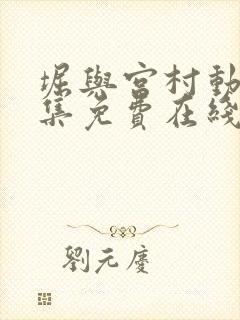 堀與宮村動
集免費在綫
劉元慶